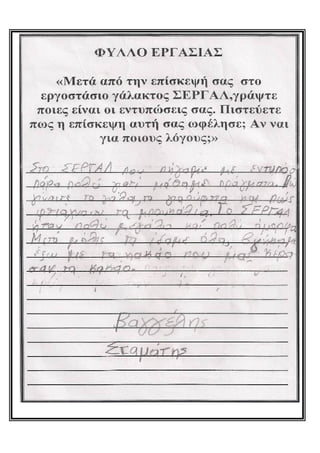 ΦΥΛΛΟ ΕΡΓΑΣΙΑΣ
«Μετά από την επίσκεψή σας στο
εργοστάσιο γάλακτος ΣΕΡΓΑΛ,γράψτε
ποιες είναι οι εντυπώσεις σας. Πιστεύετε
πως η επίσκεψη αυτή σας ωφέλησε; Αν ναι
για ποιους λόγους;»
Στο ΣΕΡΓΑΛ που πήγαμε με
πάρα πολύ γιατί μάθαμε πράγματα.
το γάλα, το γιαούρτι και πώς
φτιάχνουν τα μπουκάλια. Το ΣΕΡΓΑΛ
ήταν πολύ μεγάλο και πολύ όμορφο
Μετά μόλις τα είδαμε όλα,
έξω με το κακάο που μας
σαν το κακάο.
Βαγγέλης
Σταμάτης